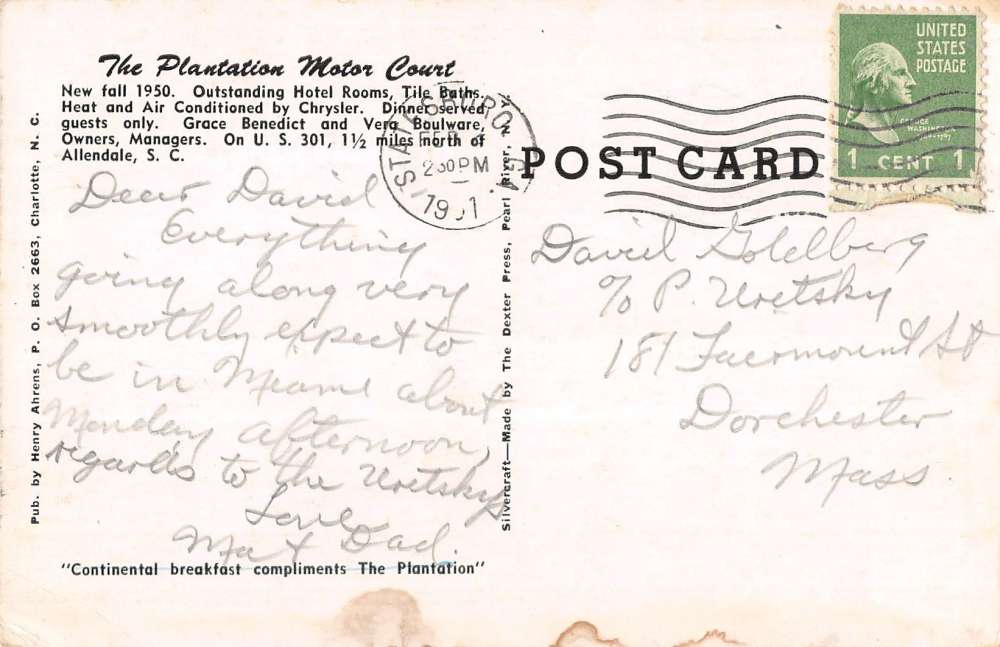 The Plantation Motor Court
New fall 1950. Outstanding Hotel Rooms, Tile Baths.
Heat and Air Conditioned by Chrysler. Dinner served
guests only. Grace Benedict and Vera Boulware,
Owners, Managers. On U. S. 301, 1½ miles north of
Allendale, S. C.
Dear David
Everything
going along very
smoothly expect to
be in Miami about
Monday afternoon,
regards to the Uretskys
Love
Ma & Dad.
"Continental breakfast compliments The Plantation"
Pub. by Henry Ahrens, P. O. Box 2663, Charlotte, N. C.
Silvercraft—Made by The Dexter Press, Pearl River, N. Y.
STATESBURO
FEB
2 30 PM
1951
POST CARD
UNITED
STATES
POSTAGE
GEORGE
WASHINGTON
1 CENT 1
David Goldberg
c/o P. Uretsky
181 Fairmount St
Dorchester
Mass